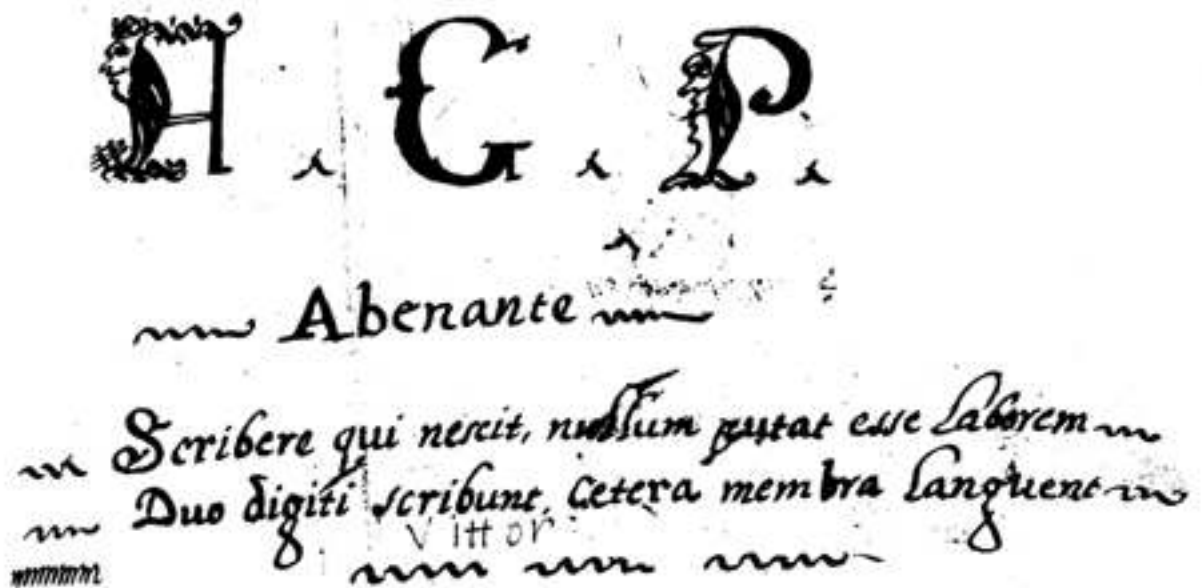 A. G. P.
Abenante
Scribere qui nescit, nullum putat esse laborem
Duo digiti scribunt, Cetera membra languent
Vittor